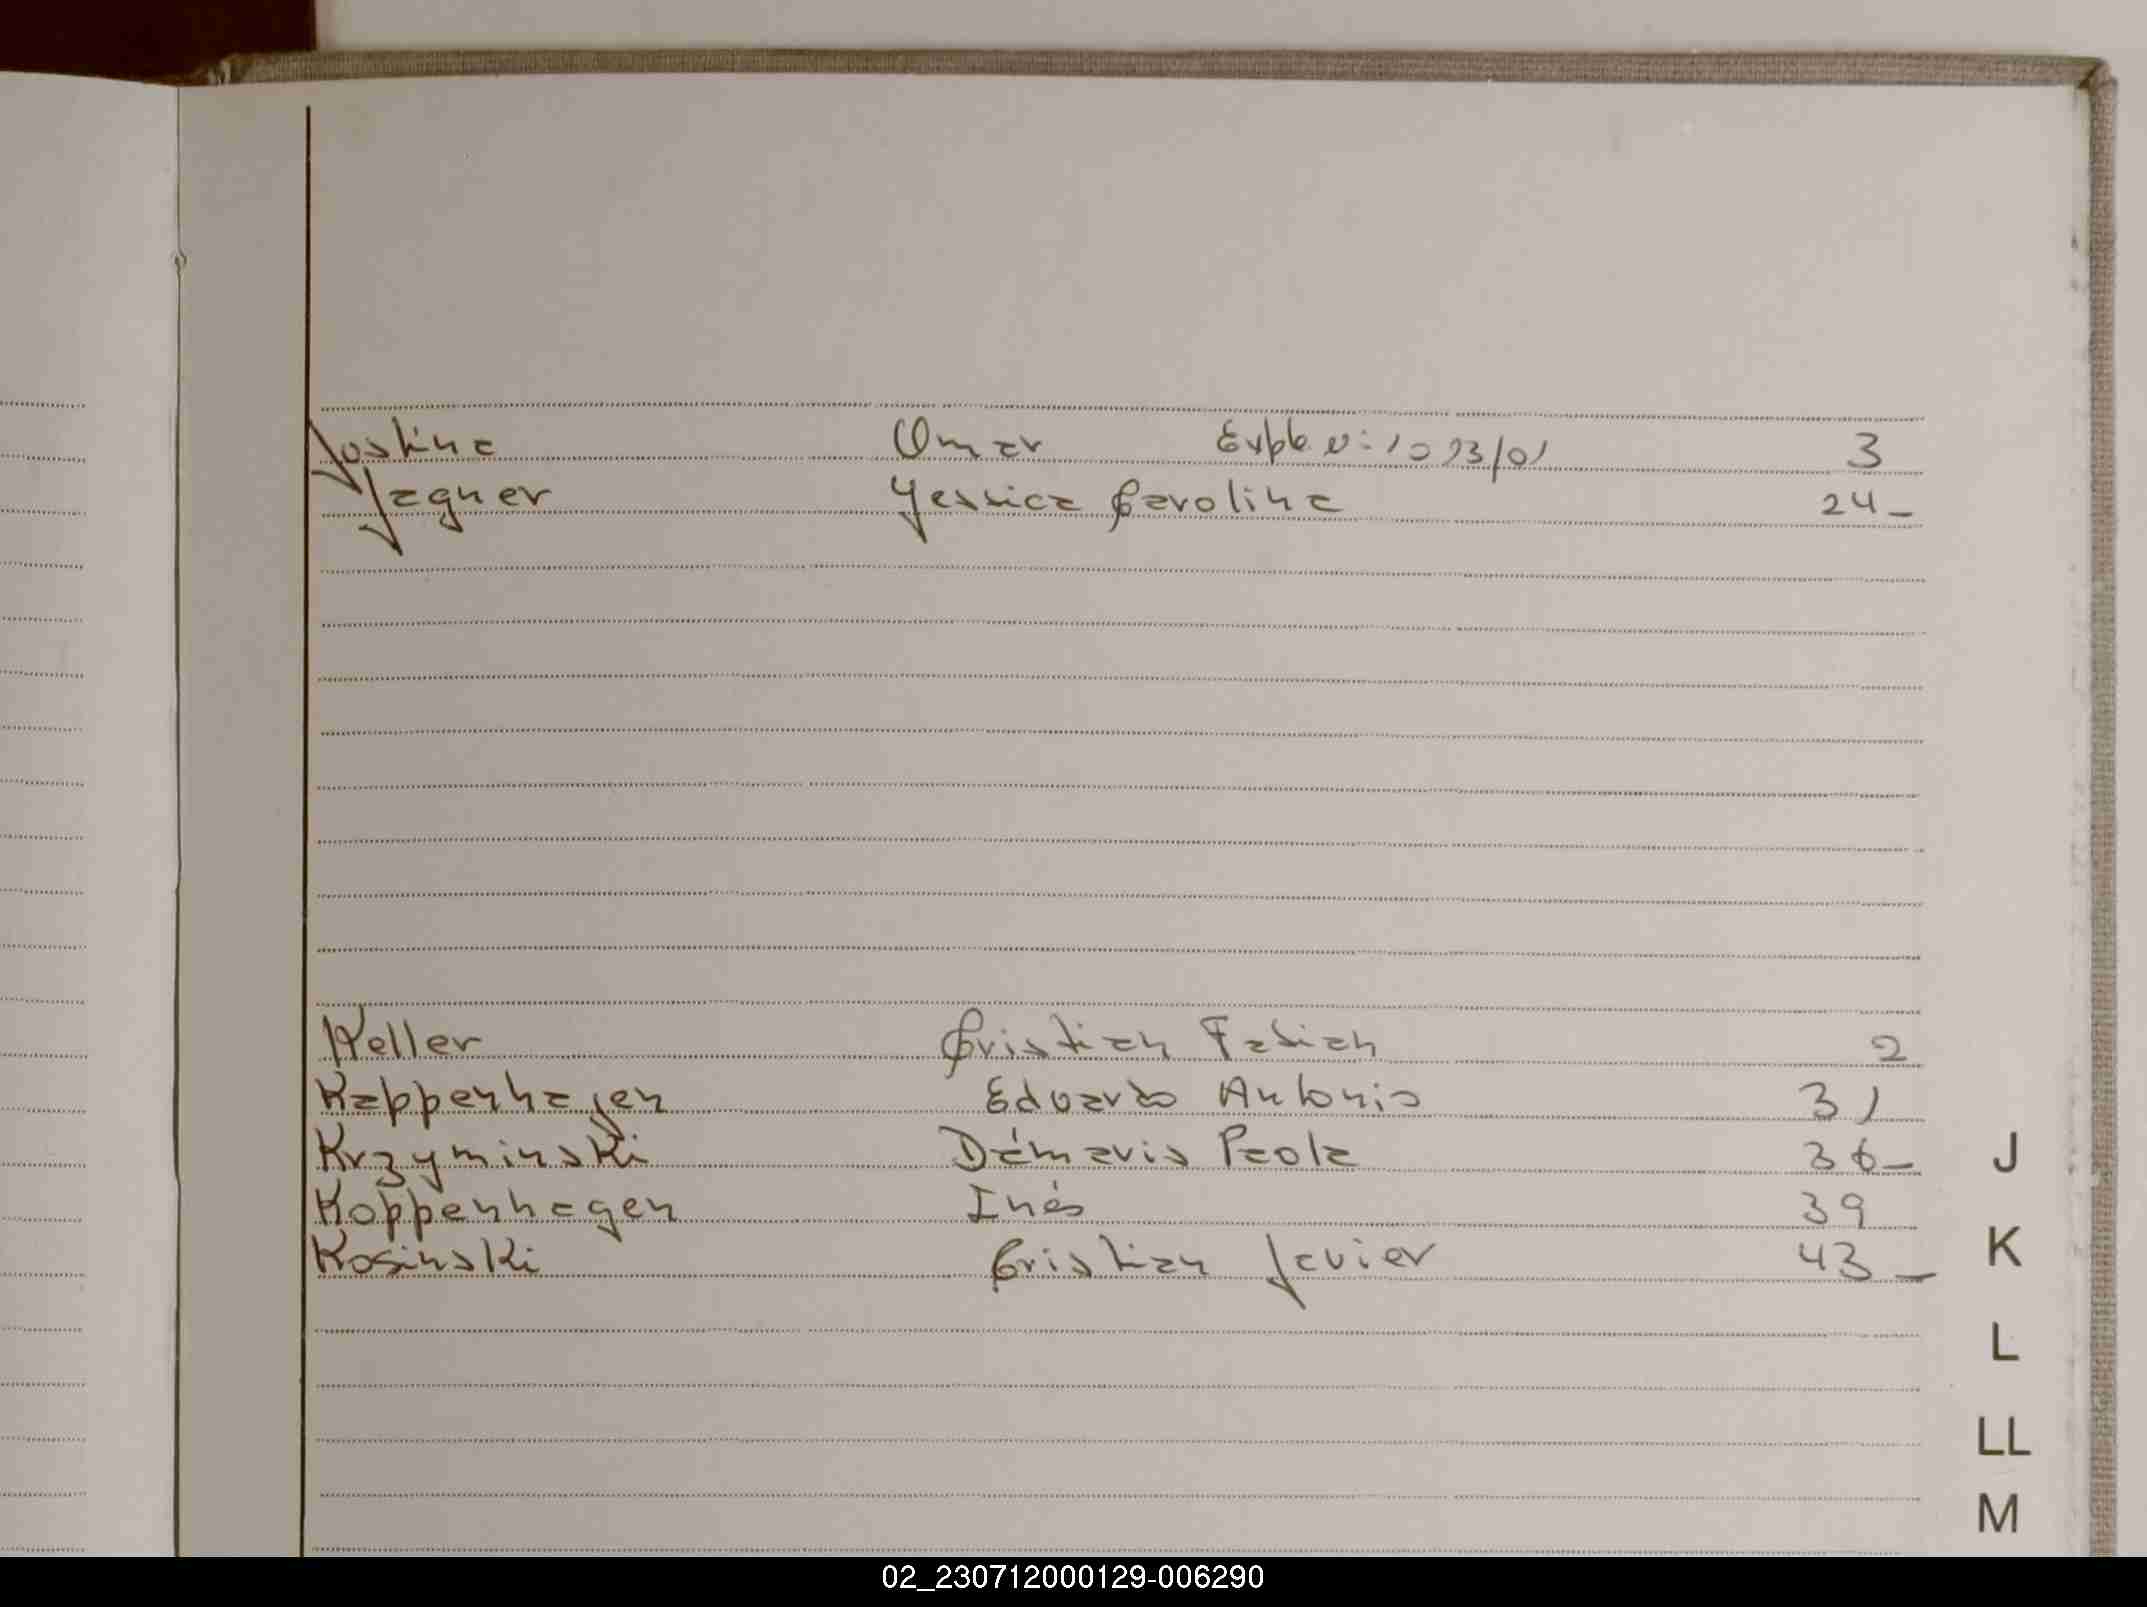 Jostina Omar Expte. N: 1093/01 3
Jagner Yessica Carolina 24_
Keller Cristian Fabian 2
Kappenhagen Eduardo Antonio 31
Krzyminski Dámaris Paola 36_
Koppenhagen Inés 39
Kosinski Cristian Javier 43_
J
K
L
LL
M
02_230712000129-006290